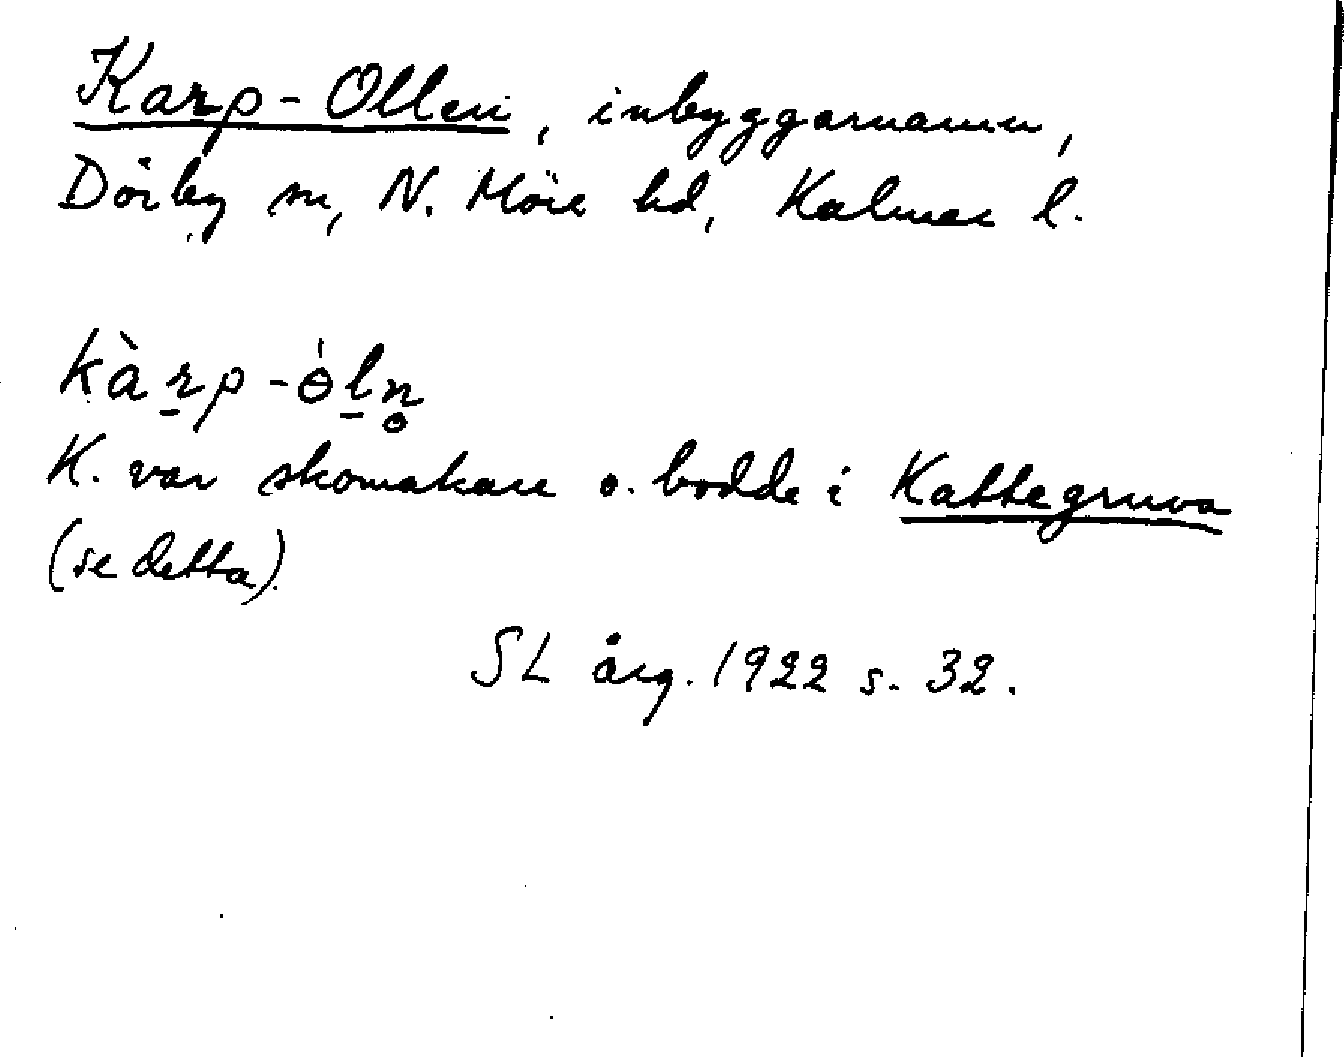 Karp-Ollen, inbyggarnamn,
Dörby sn, N. Möre hd, Kalmar l.
kàr̠p-ɵ́l̠n̥
K. var skomakare o. bodde i Kattegruva
(se detta).
SL årg. 1922 s. 32.